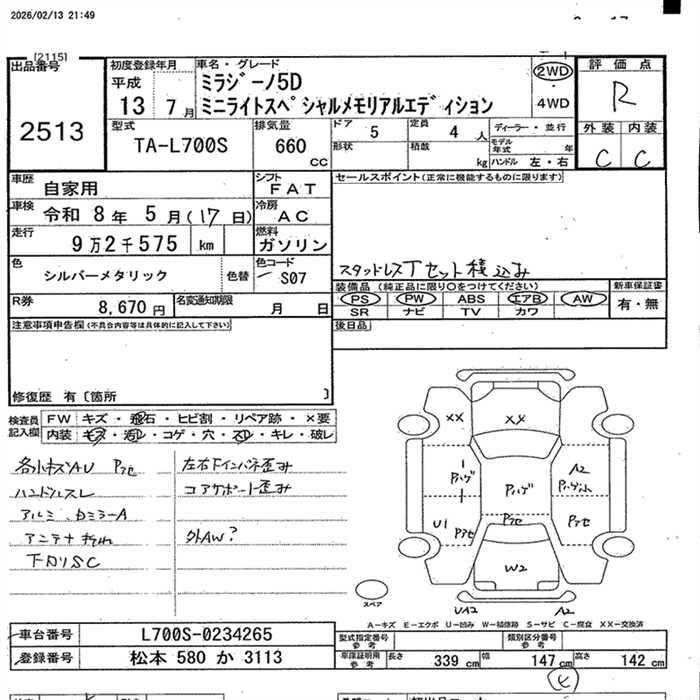 2026/02/13 21:49
[2115]
出品番号
2513
初度登録年月
平成
13 7月
車名・グレード
ミラジーノ5D
ミニライトスペシャルメモリアルエディション
2WD
・
4WD
評価点
R
外装 内装
C C
型式
TA-L700S
排気量
660
cc
ドア 5
定員 4 人
形状
積載 kg
ディーラー・並行
モデル年式 年
ハンドル 左・右
車歴
自家用
シフト
FAT
車検
令和 8年 5月(17日)
冷房
AC
走行
9万2千575 km
燃料
ガソリン
色
シルバーメタリック
色替
色コード
S07
R券
8,670円
名変通知期限
月 日
セールスポイント(正常に機能するものに限ります)
スタッドレスTセット積込み
装備品(純正品に限り○をつけてください)
PS PW ABS エアB AW
SR ナビ TV カワ
新車保証書
有・無
後日品
注意事項申告欄(不具合内容等は具体的に記入して下さい)
修復歴 有〔箇所 〕
検査員
記入欄
FW キズ・飛石・ヒビ割・リペア跡・×要
内装 キズ・汚レ・コゲ・穴・スレ・キレ・破レ
各小キズAU Pアセ
ハンドルスレ
アルミ、カミラーA
アンテナ
下カリSC
左右Fインパネ歪み
コアサポート歪み
外AW?
XX
XX
Pハゲ
Pハゲ
A2
Pハゲ
U1
Pアセ
Pアセ
Pアセ
W2
UA2
A2
スペア
A－キズ E－エクボ U－凹み W－補修跡 S－サビ C－腐食 XX－交換済
車台番号
L700S-0234265
登録番号
松本 580 か 3113
型式指定番号
参考
類別区分番号
参考
車庫証明用
参考
長さ 339 cm
幅 147 cm
高さ 142 cm